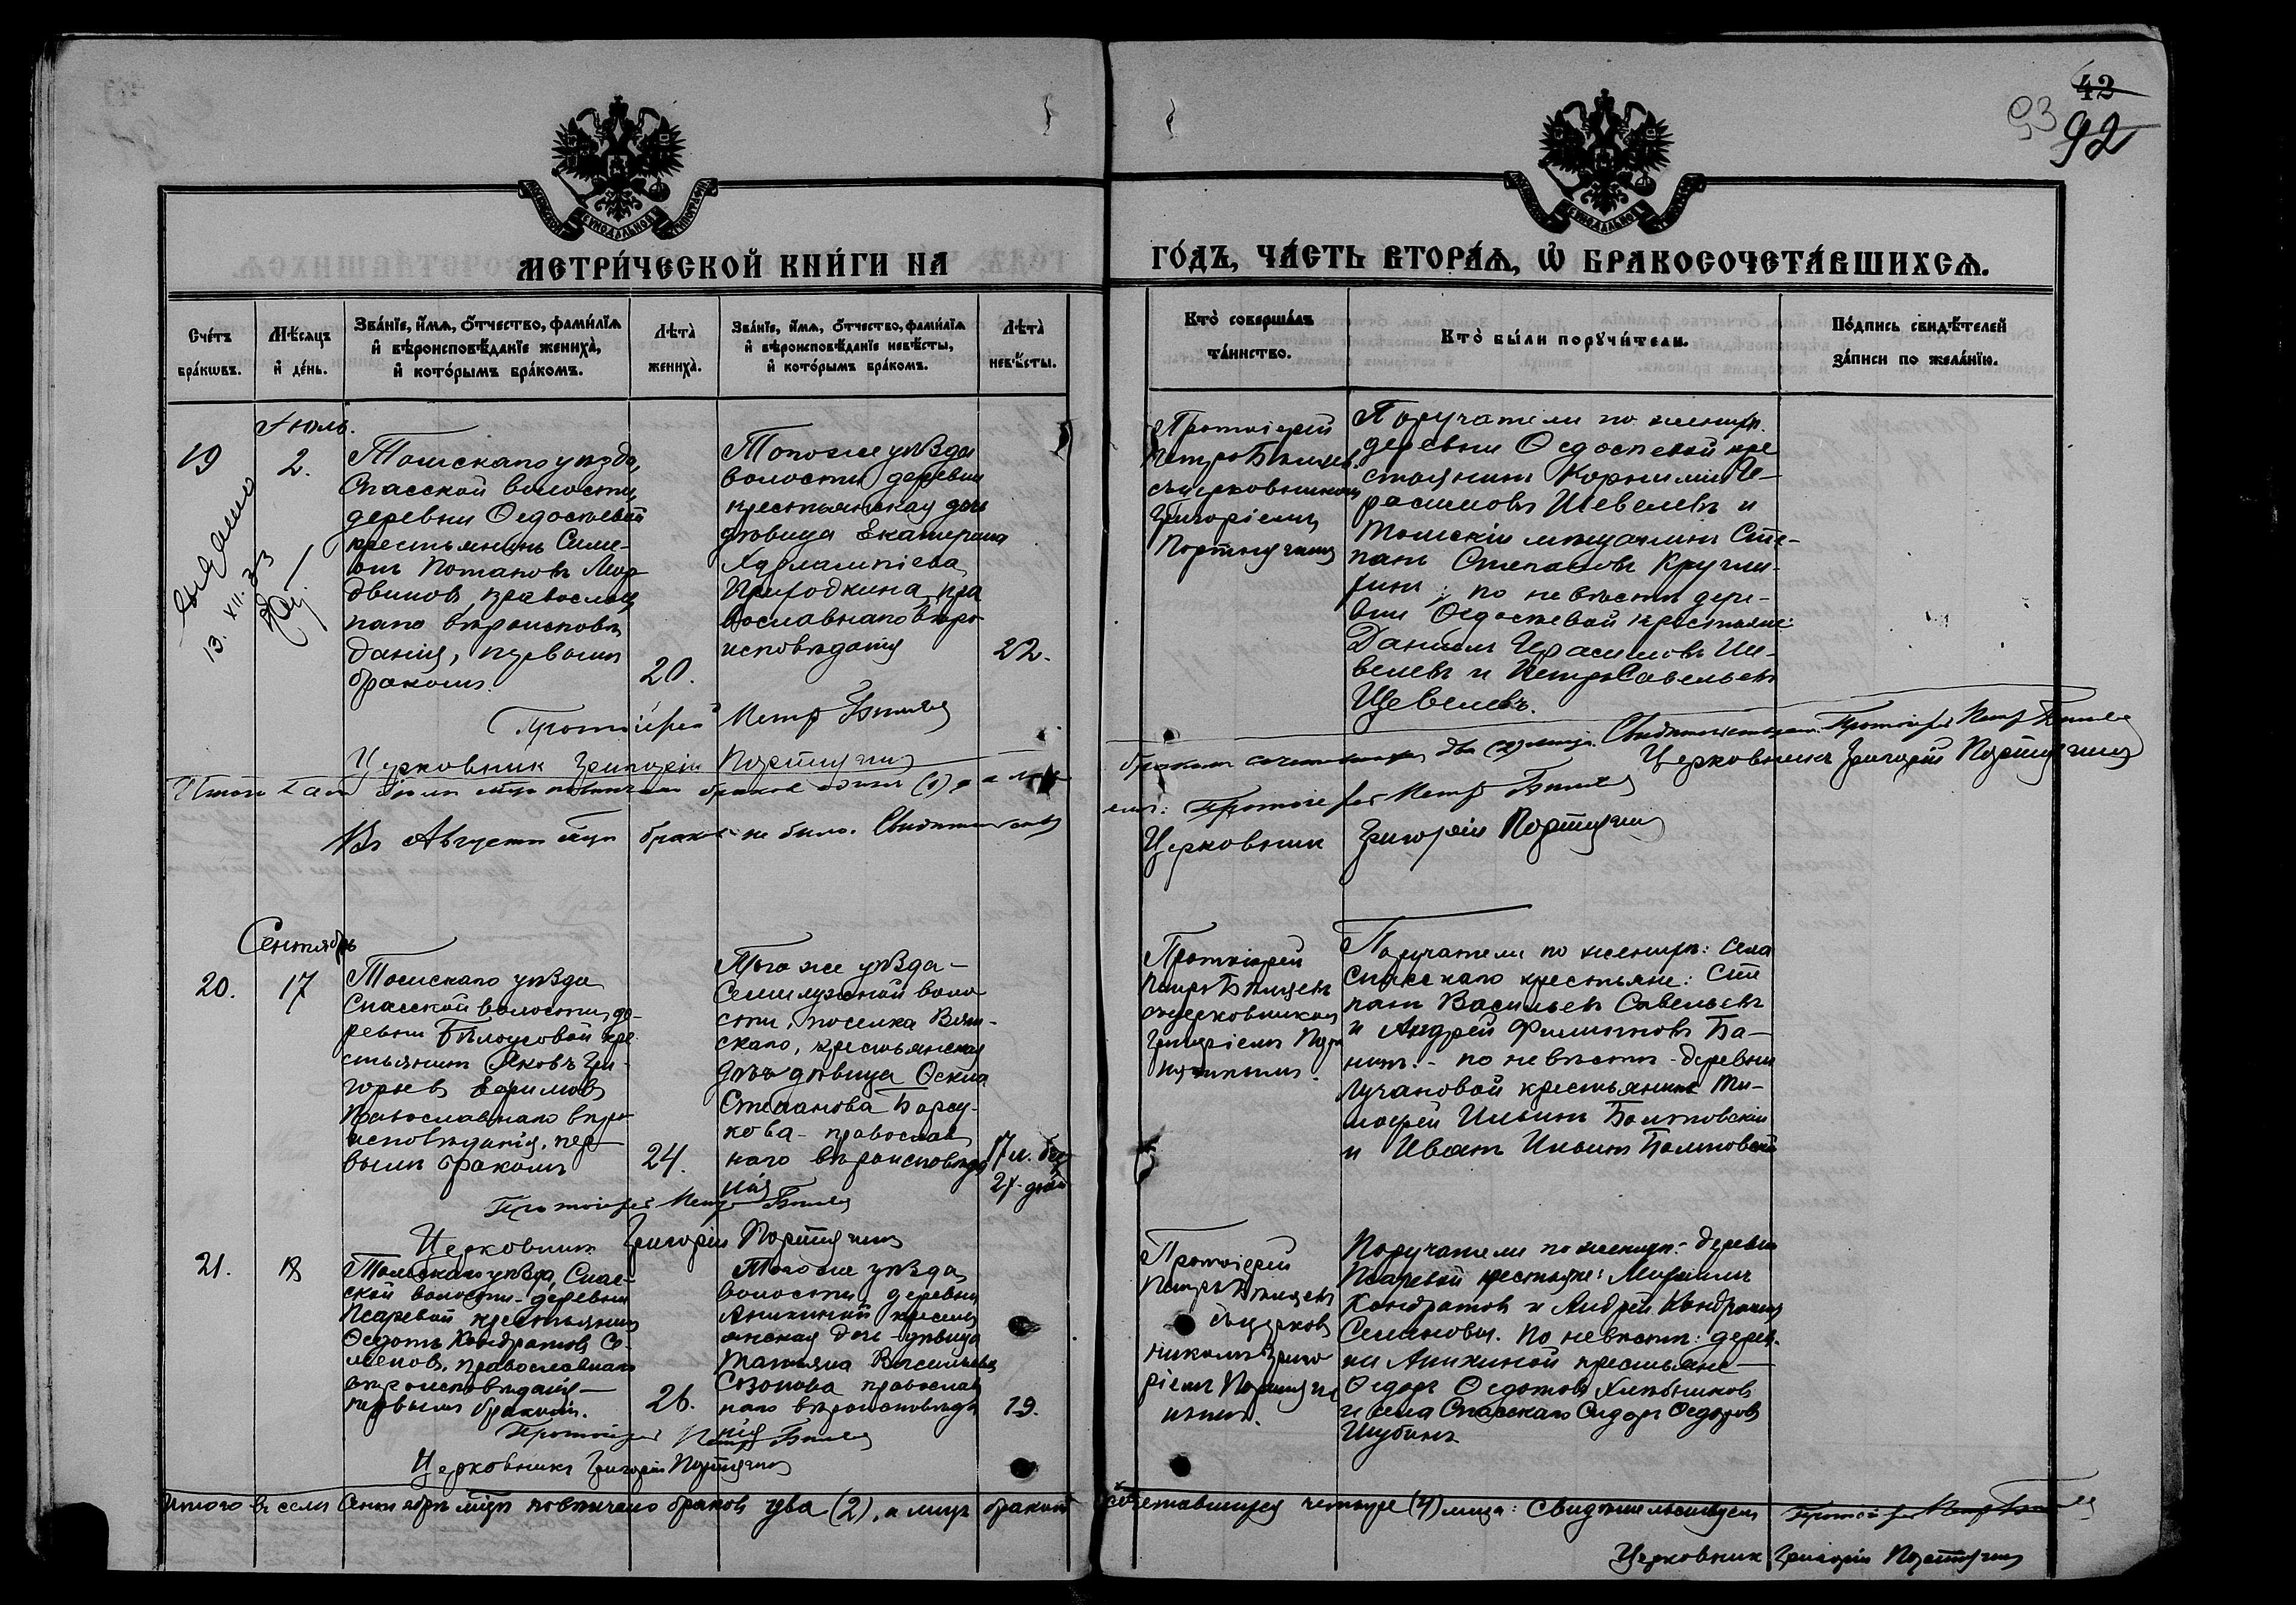 42
93
92
МЕТРИ́ЧЕСКОЙ КНИ́ГИ НА
ГО́ДЪ, ЧА́СТЬ ВТОРА́Ѧ, Ѽ БРАКОСОЧЕТА́ВШИХСѦ.
Сче́тъ бра́кѡвъ.
Мѣ́сѧцъ и҆ де́нь.
Зва́нїе, и҆́мѧ, ѻ҆́тчество, фами́лїѧ и҆ вѣроисповѣ́данїе жениха̀, и҆ кото́рымъ бра́комъ.
Лѣ́та̀ жениха̀.
Зва́нїе, и҆́мѧ, ѻ҆́тчество, фами́лїѧ и҆ вѣроисповѣ́данїе невѣ́сты, и҆ кото́рымъ бра́комъ.
Лѣ́та̀ невѣ́сты.
Кто̀ соверша́лъ та́инство.
Кто̀ бы́ли порꙋчи́тели.
По́дпись свидѣ́телей за́писи по жела́нїю.
Іюль.
19
2.
13. XII. 33
Томскаго уѣзда,
Спасской волости,
деревни Ѳедосѣевой
крестьянинъ Симе-
онъ Потаповъ Мор
двиновъ, православ
наго вѣроисповѣ
данія, первымъ
бракомъ.
20.
Того же уѣзда
волости деревни
крестьянская дочь
дѣвица Екатерина
Харлампіева
Приходкина, пра
вославнаго вѣро
исповѣданія
22.
Протоіерей
Петръ Бѣляевъ
съ церковникомъ
Григоріемъ
Поручатели по женихѣ:
деревни Ѳедосѣевой кре
стьянинъ Корнилій Ге-
расимовъ Шевелевъ и
Томскій мѣщанинъ Сте-
панъ Степановъ
по невѣстѣ дере-
вни Ѳедосѣевой крестьяне:
Даніилъ Герасимовъ Ше-
велевъ и Петръ Савельевъ
Шевелевъ.
Протоіерей Петръ Бѣляевъ
Церковникъ Григорій
Итого въ Іюлѣ мѣсяцѣ повѣнчано браковъ одинъ (1), а лицъ
бракомъ сочетавшихся два (2) лица. Свидѣтельствуемъ: Протоіерей Петръ Бѣляевъ
Церковникъ Григорій
Въ Августѣ мцѣ браковъ не было. Свидѣтельству
емъ: Протоіерей Петръ Бѣляевъ
Церковникъ Григорій
Сентябрь
20.
17
Томскаго уѣзда
Спасской волости, де-
ревни Бѣлоусовой кре
стьянинъ Яковъ Гри-
горьевъ Ефимовъ
Православнаго вѣро
исповѣданія, пер-
вымъ бракомъ
24.
Того же уѣзда-
Семилужной воло
сти, поселка
скаго, крестьянская
дочь дѣвица
Степанова Барсу-
кова- православ
наго вѣроисповѣда
нія
17 л.
27 дней
Протоіерей
Петръ Бѣляевъ
съ церковникомъ
Григоріемъ
Поручатели по женихѣ: села
Спасскаго крестьяне: Сте
панъ Васильевъ Савельевъ
и Андрей Филипповъ Ба-
нинъ. - по невѣстѣ - деревни
Лучановой крестьянинъ Ти-
мофей Ильинъ Болтовскій
и Иванъ Ильинъ Болтовскій
Протоіерей Петръ Бѣляевъ
Церковникъ Григорій
21.
18
Томскаго уѣзда, Спас-
ской волости - деревни
Писаревой крестьянинъ
Ѳедотъ Кондратовъ Се-
меновъ, православнаго
вѣроисповѣданія-
первымъ бракомъ.
26.
Того же уѣзда,
волости, деревни
Аникиной кресть
янская дочь - дѣвица
Татьяна Васильева
Созонова православ
наго вѣроисповѣда
нія
19.
Протоіерей
Петръ Бѣляевъ
съ церков
никомъ Григо
ріемъ
Поручатели по женихѣ: - деревни
Писаревой крестьяне: Михаилъ
Кондратовъ и Андрей Кондратовъ
Семеновы. По невѣстѣ: дерев-
ни Аникиной крестьяне-
Ѳедоръ Ѳедотовъ
и села Спасскаго Сидоръ Ѳедоровъ
Шубинъ
Протоіерей Петръ Бѣляевъ
Церковникъ Григорій
Итого въ семъ Сентябрѣ мцѣ повѣнчано браковъ два (2), а лицъ бракомъ сочетавшихся четыре (4) лица: Свидѣтельствуемъ Протоіерей Петръ Бѣляевъ
Церковникъ Григорій